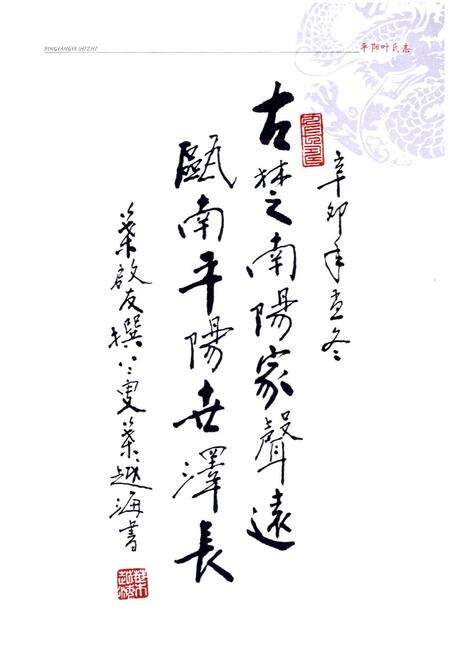 PINGYANGYE SHIZHI
平阳叶氏志
辛卯年孟冬
古楚南陽家聲遠
甌南平陽世澤長
葉啟友撰 葉越海書
葉越海